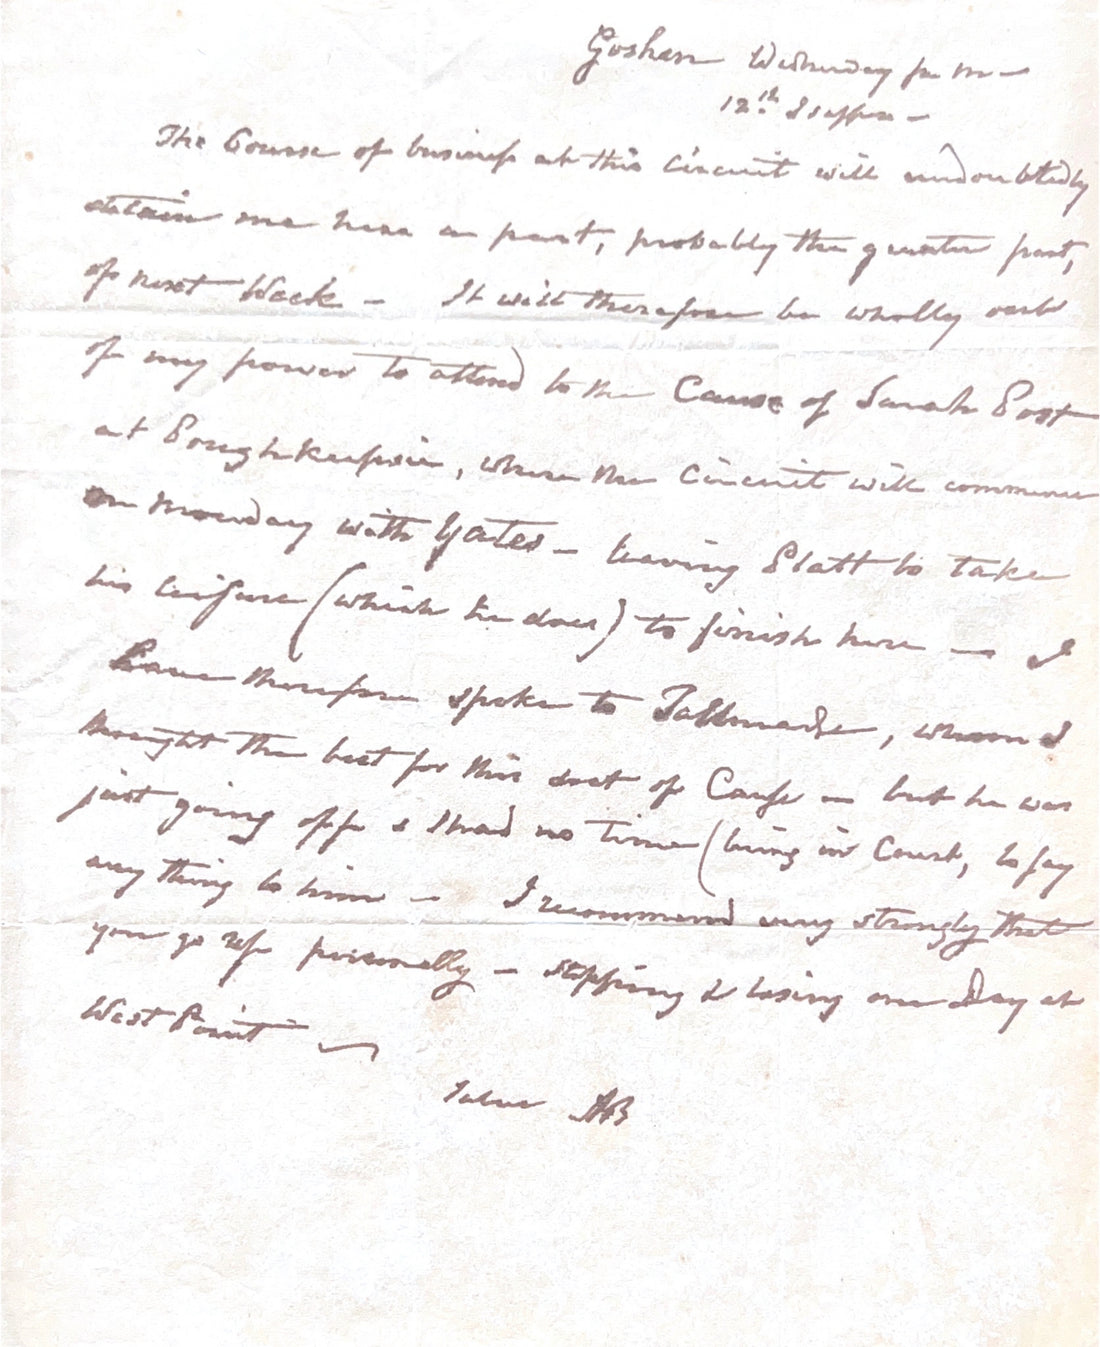 Goshen Wednesday p m —
12th Septr —
The Course of business at this Circuit will undoubtedly
detain me here a part, probably the greater part,
of next Week — It will therefore be wholly out
of my power to attend to the Cause of Sarah Post
at Poughkeepsie, where the Circuit will commence
on Monday with Yates — leaving Platt to take
his leisure (which he does) to finish here — I
have therefore spoke to Tallmadge, whom I
thought the best for this sort of Cause — but he was
just going off & I had no time (being in Court, to say
any thing to him — I recommend very strongly that
you go up personally — stopping & losing one Day at
West Point —
AB